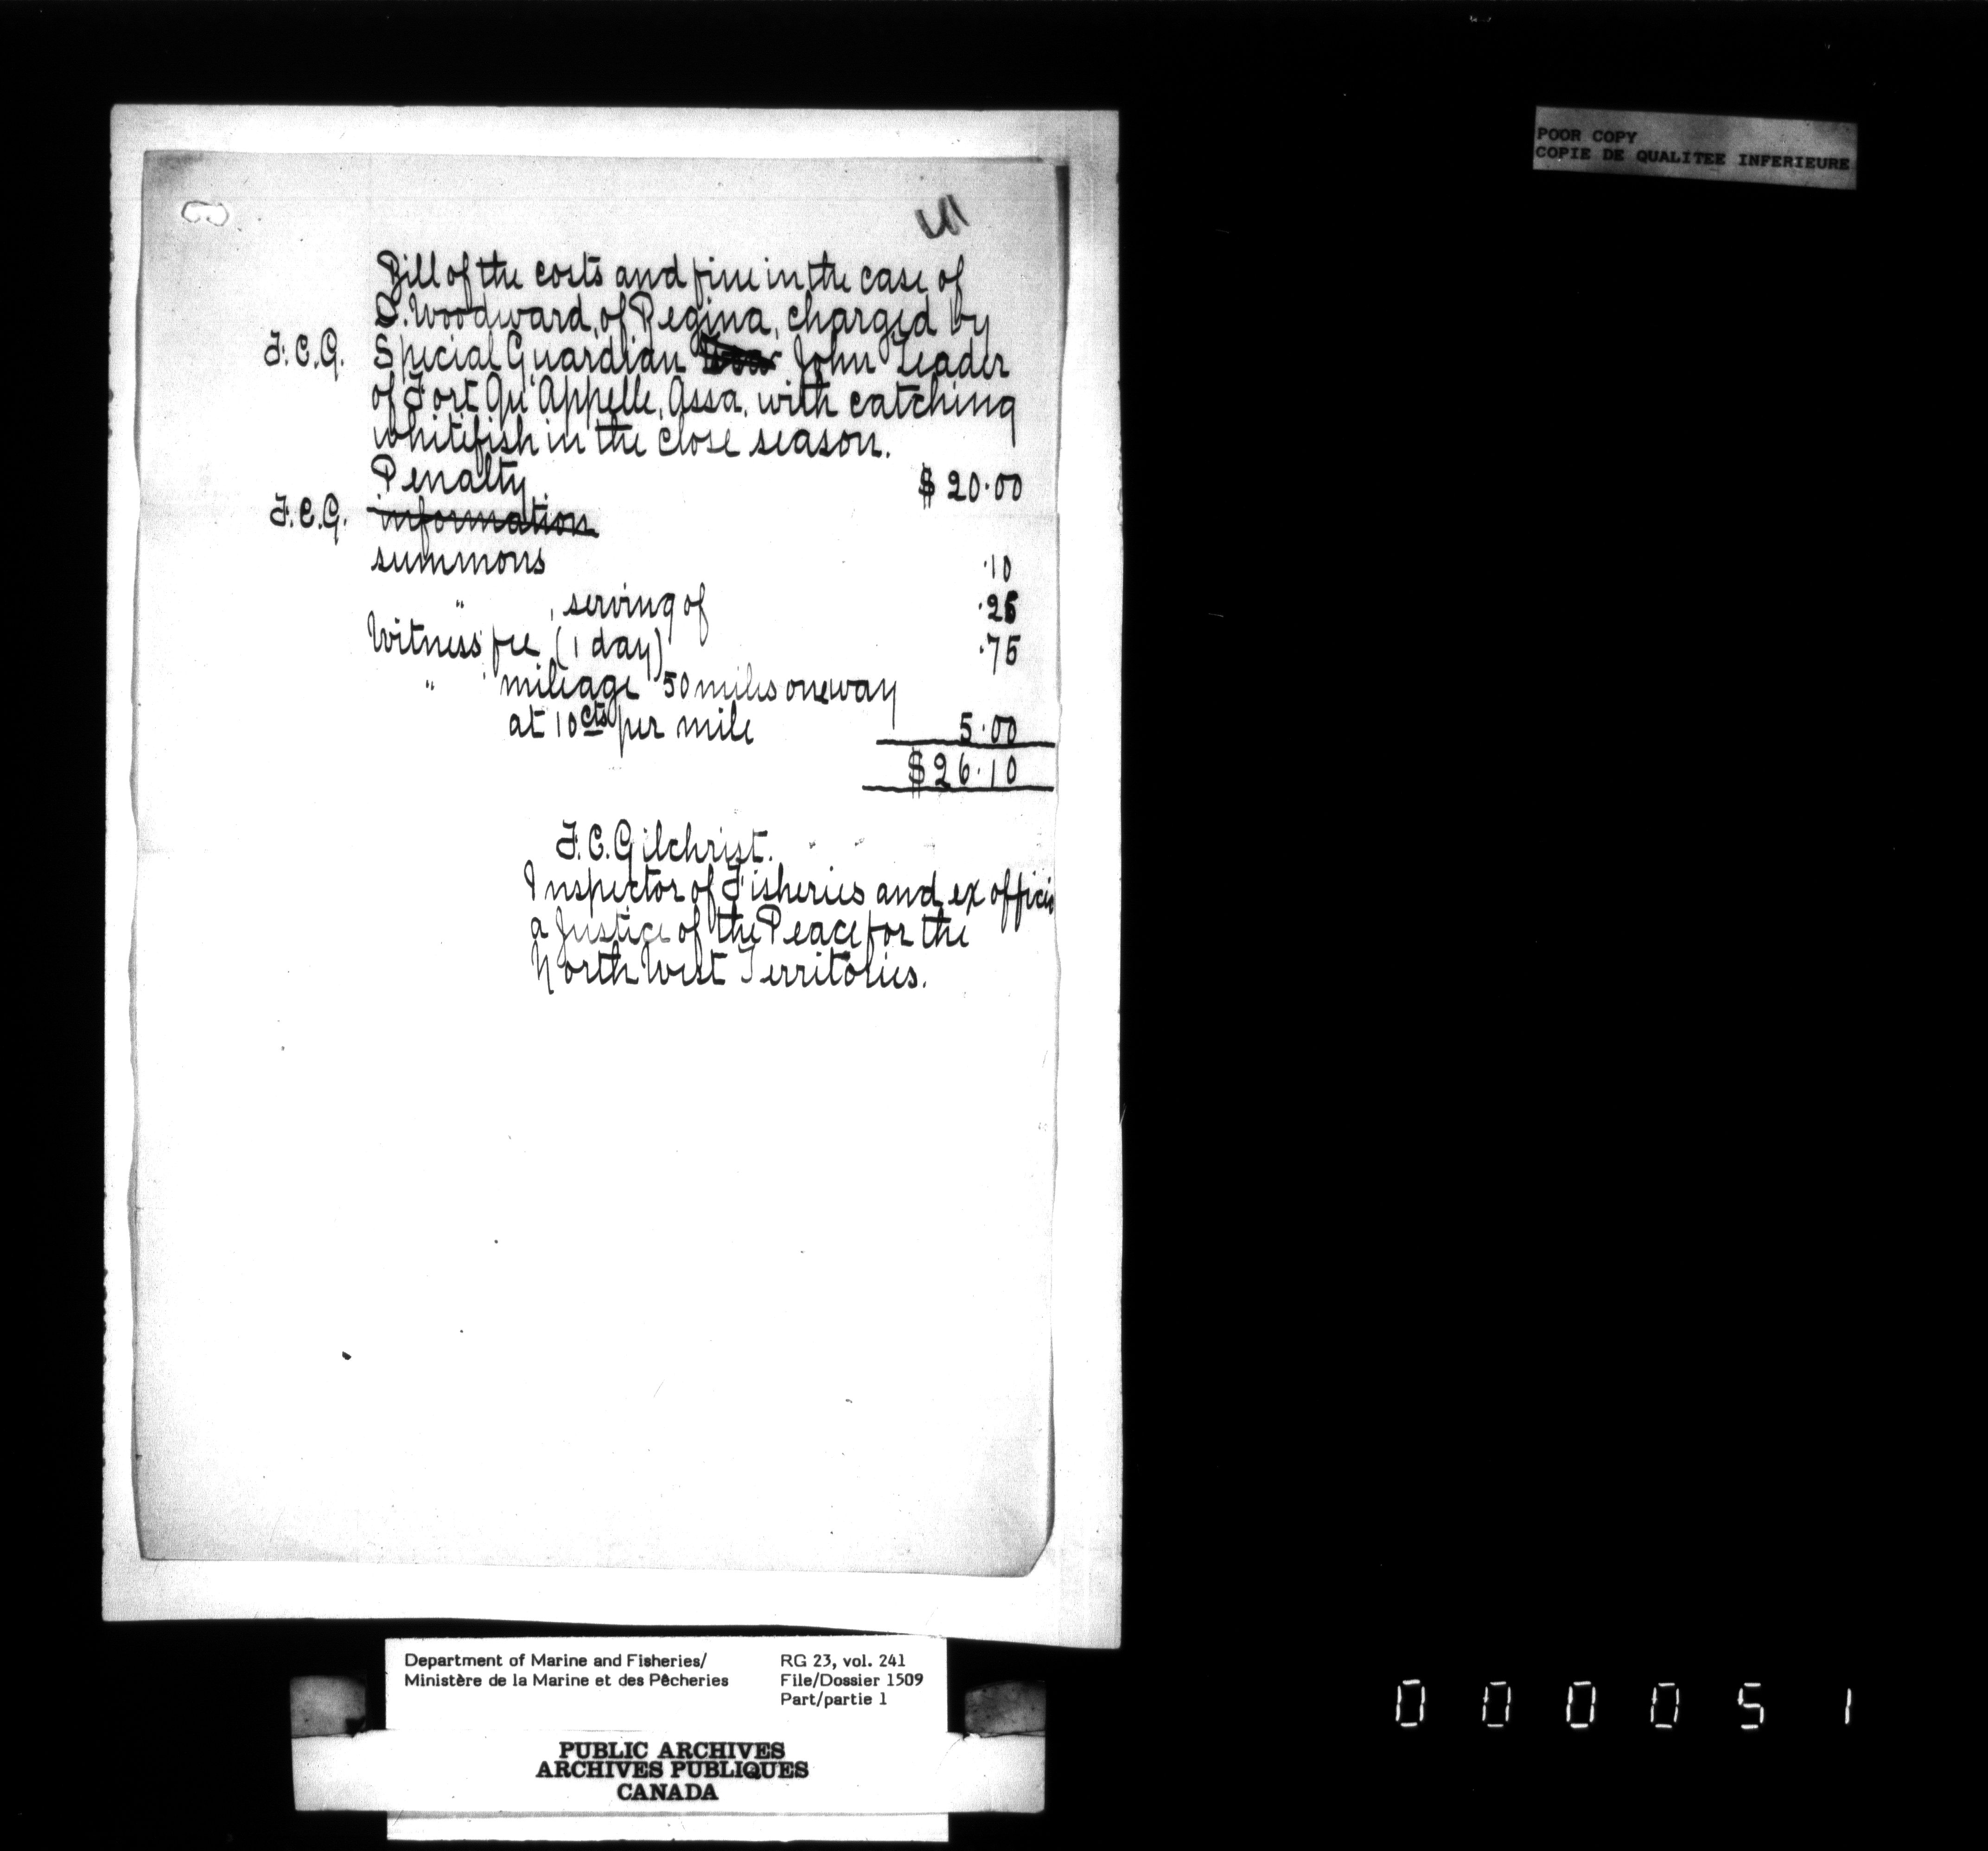 POOR COPY
COPIE DE QUALITEE INFERIEURE
Bill of the costs and fine in the case of
Woodward, of Regina, charged by
F.C.G. Special Guardian John Leader
of Fort Qu'Appelle, Assa. with catching
whitefish in the close season.
Penalty $20.00
F.C.G. information
summons .10
" , serving of .25
Witness fee (1 day) .75
" mileage 50 miles one way
at 10 cts per mile 5.00
$26.10
F.C. Gilchrist.
Inspector of Fisheries and ex officio
a Justice of the Peace for the
North West Territories.
Department of Marine and Fisheries/
Ministère de la Marine et des Pêcheries
RG 23, vol. 241
File/Dossier 1509
Part/partie 1
PUBLIC ARCHIVES
ARCHIVES PUBLIQUES
CANADA
000051